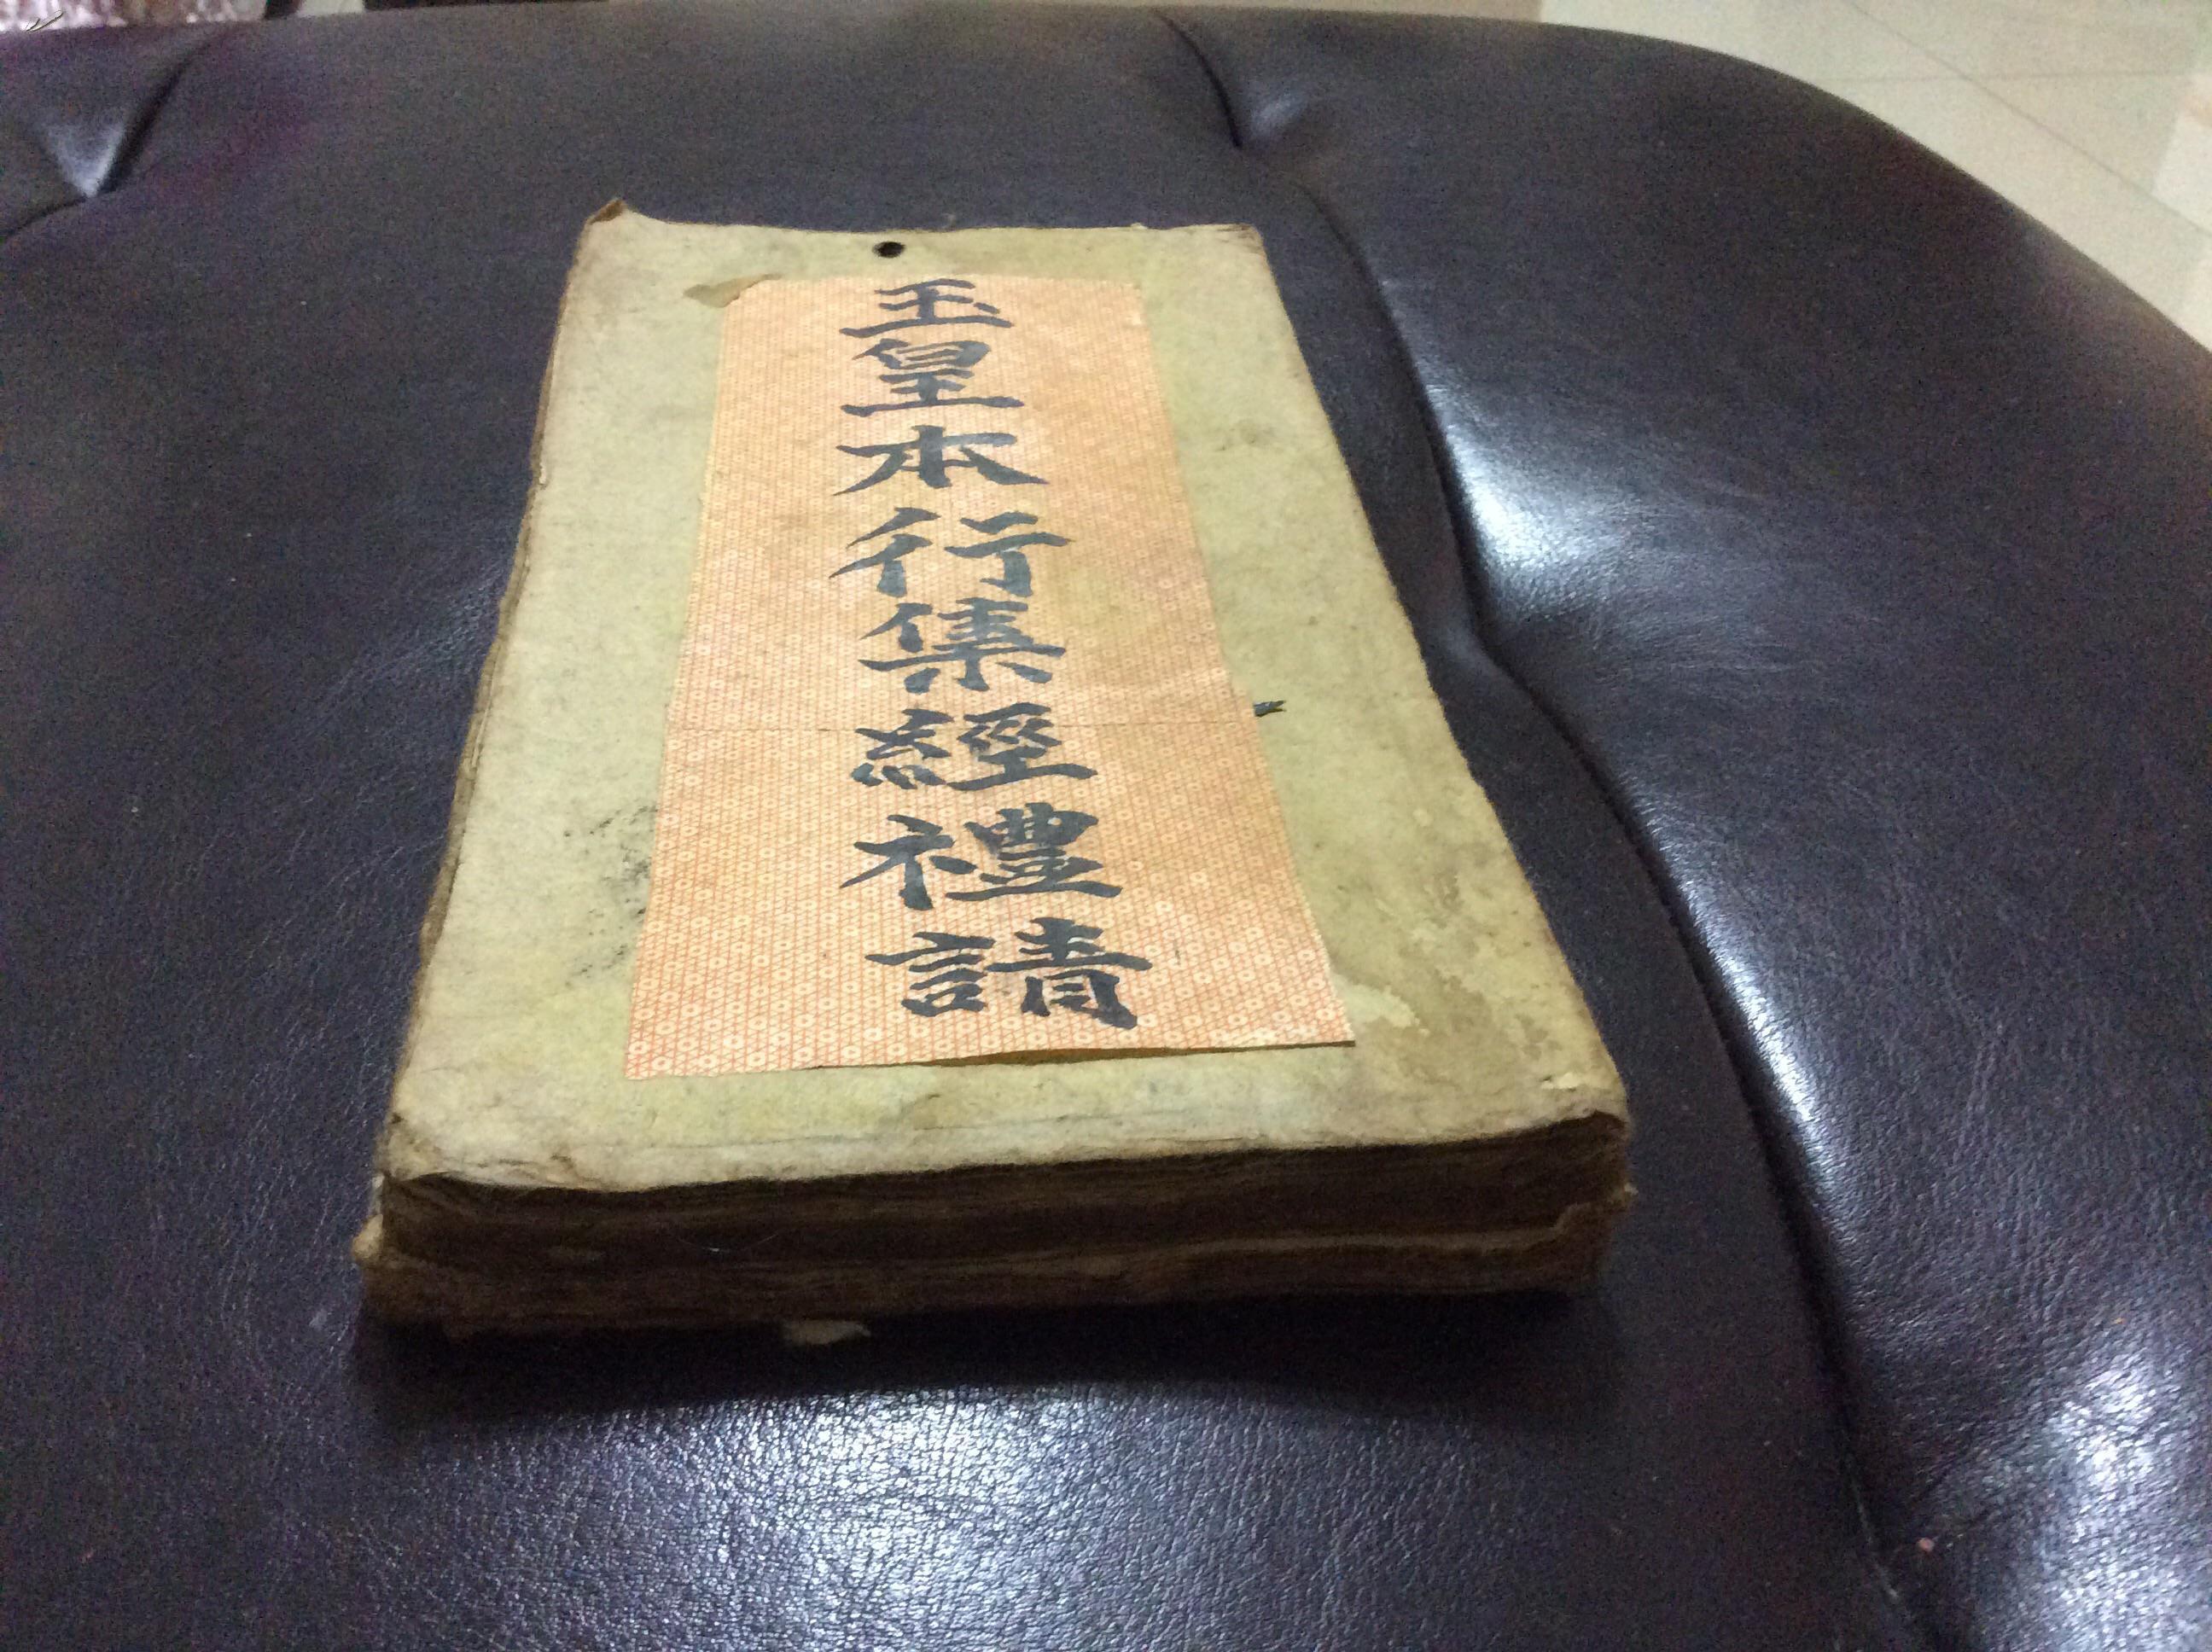 玉皇本行集經禮請